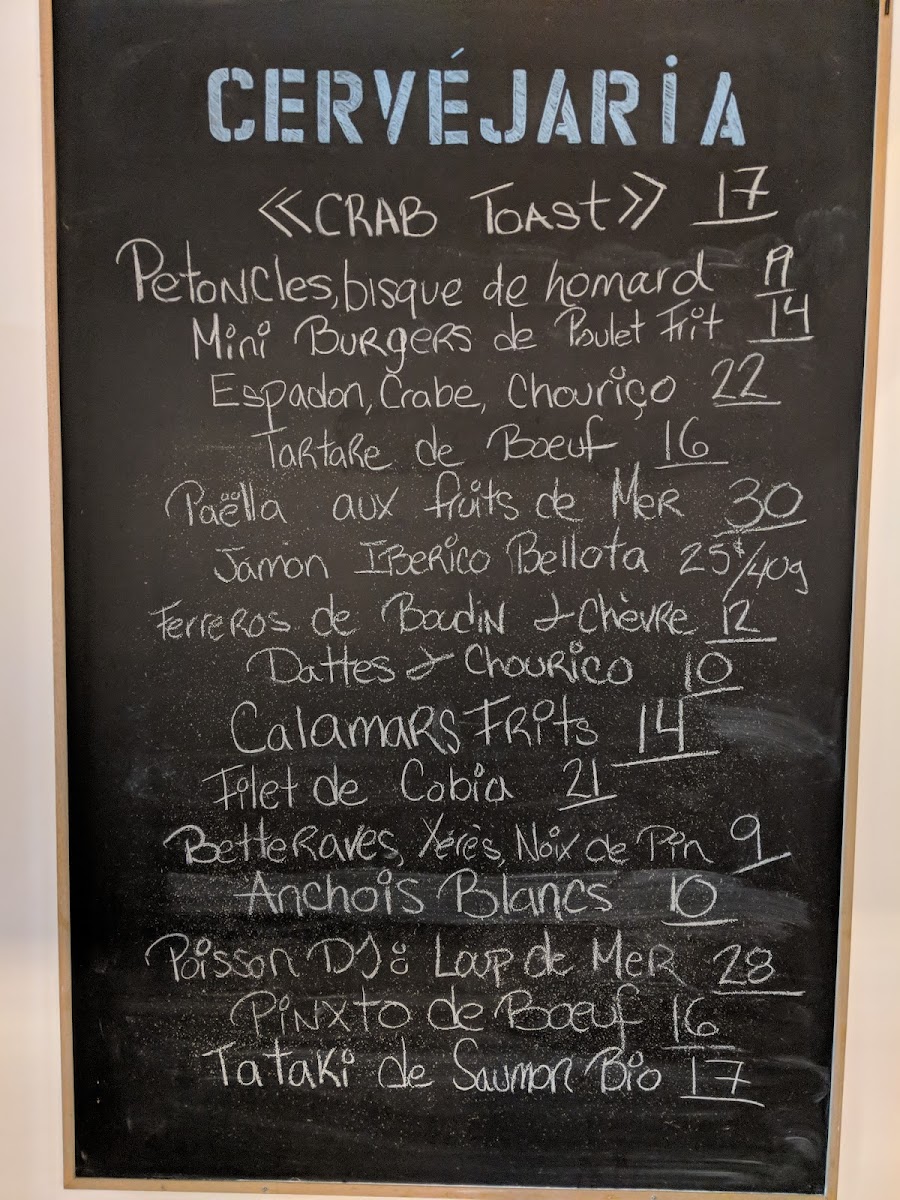 CERVÉJARIA
«CRAB TOAST» 17
Petoncles, bisque de homard 19
Mini Burgers de Poulet Frit 14
Espadon, Crabe, Chouriço 22
Tartare de Boeuf 16
Paëlla aux fruits de Mer 30
Jamon Iberico Bellota 25$/40g
Ferreros de Boudin & Chèvre 12
Dattes & Chourico 10
Calamars Frits 14
Filet de Cobia 21
Betteraves, Xérès, Noix de Pin 9
Anchois Blancs 10
Poisson DJ: Loup de Mer 28
Pinxto de Boeuf 16
Tataki de Saumon Bio 17